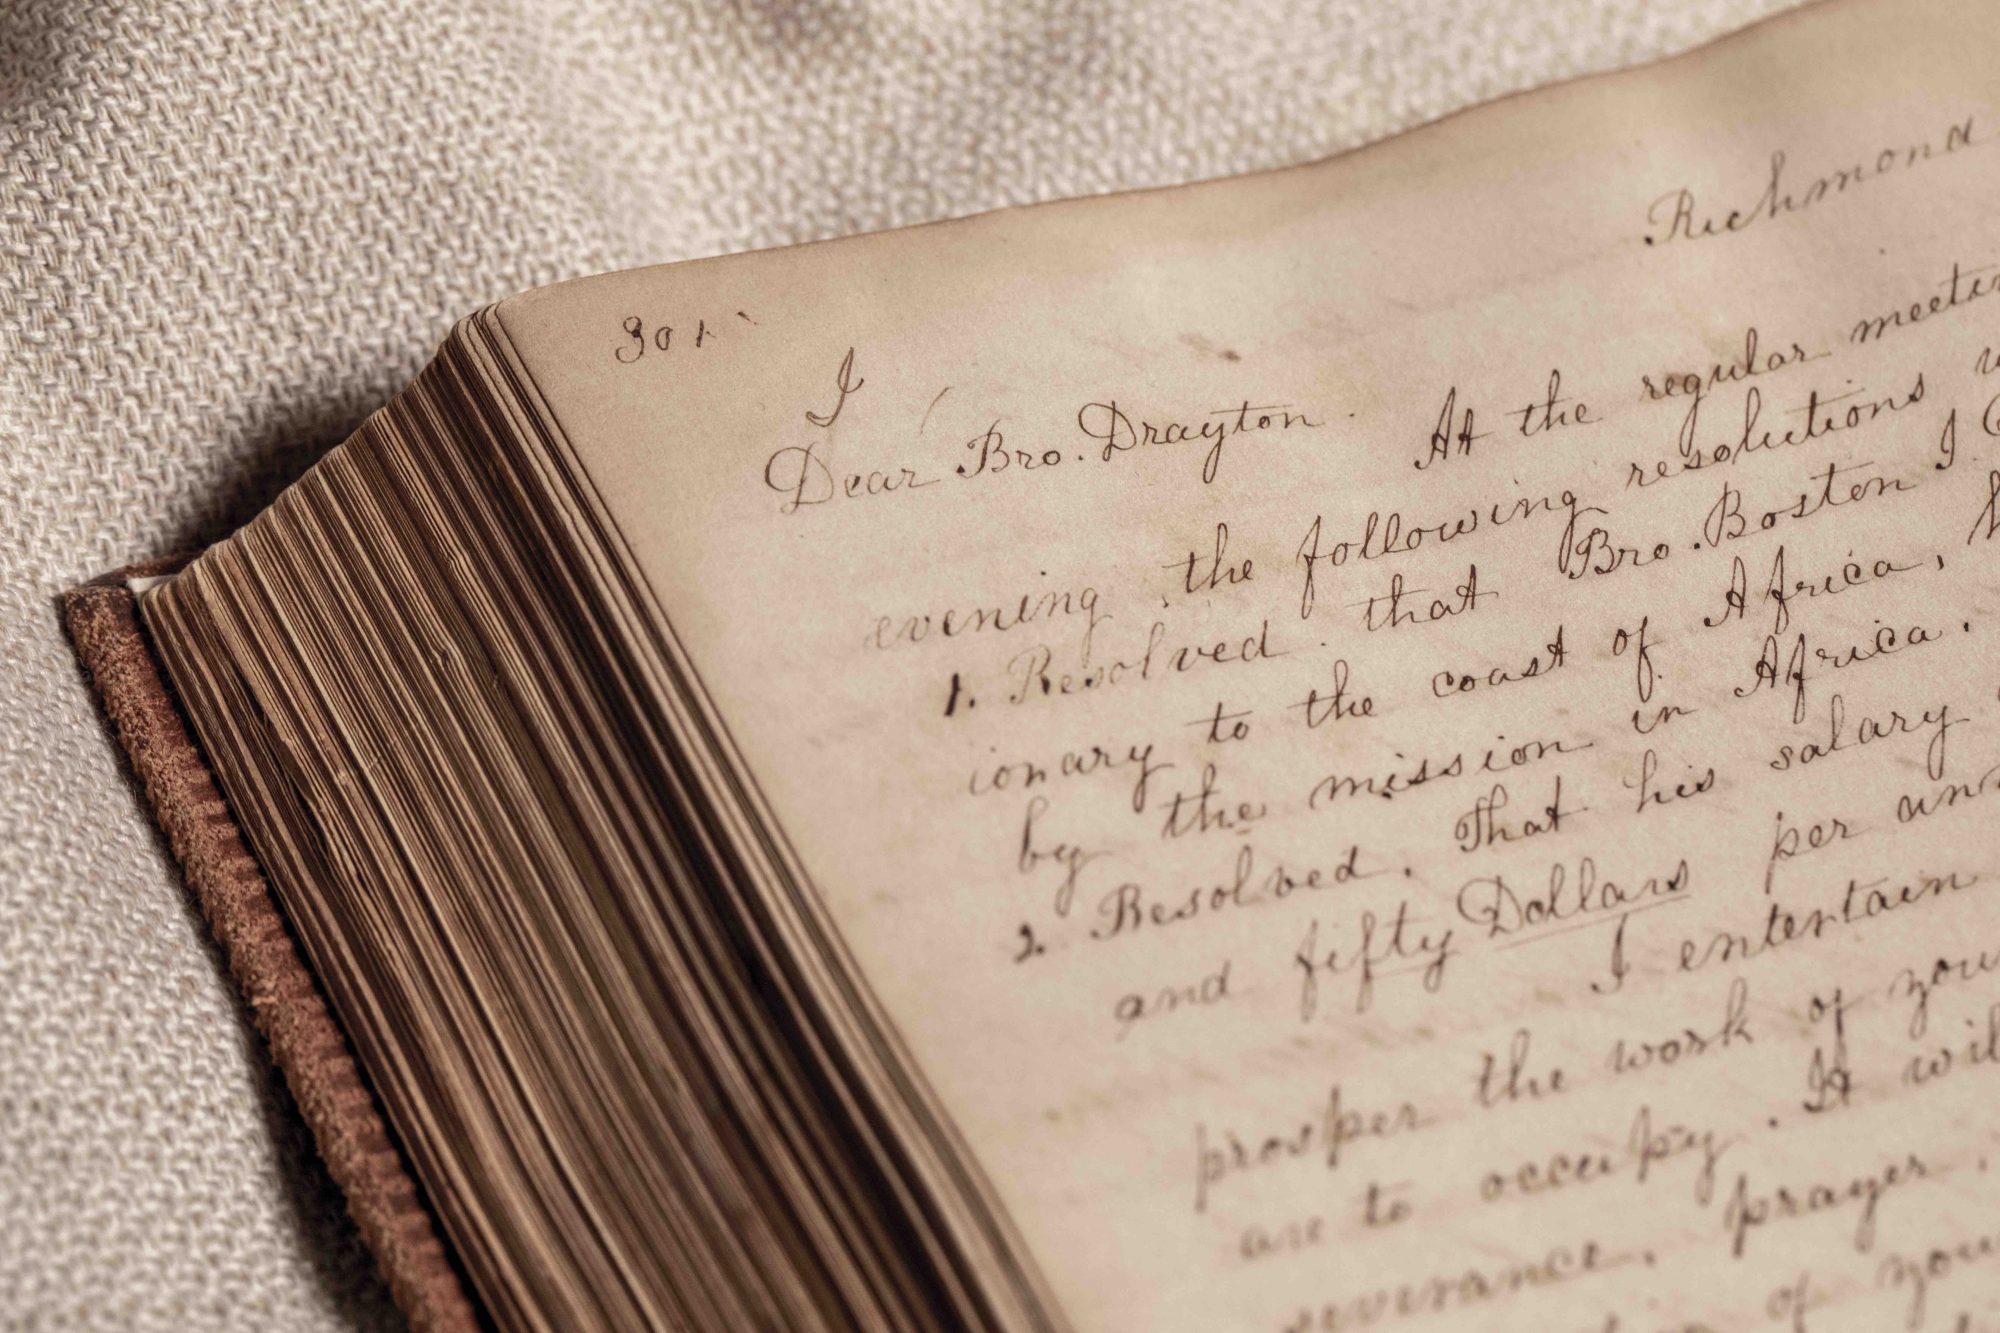 Richmond
301
I
Dear Bro. Drayton. At the regular meetin
evening the following resolutions w
1. Resolved. that Bro. Boston J.
ionary to the coast of Africa, h
by the mission in Africa.
2. Resolved. That his salary
and fifty Dollars per ann
I entertain
prosper the work of you
are to occupy. It wil
severance, prayer,
of you